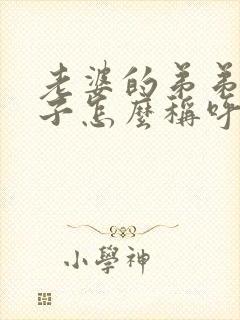 老婆的弟弟
子怎麼稱呼
小學神